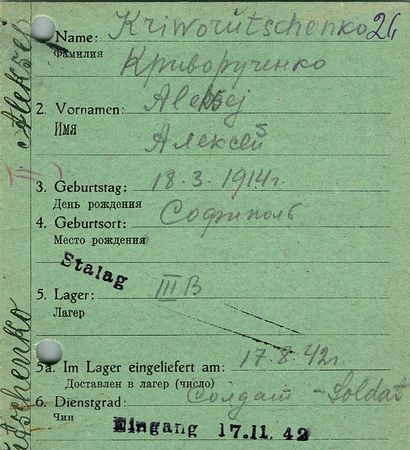 Name: Kriworutschenko 26
Фамилия Криворученко
2. Vornamen: Aleksej
Имя Алексей
3. Geburtstag: 18.3.1914г.
День рождения
4. Geburtsort: Софиполь
Место рождения
Stalag
5. Lager: III B
Лагер
5a. Im Lager eingeliefert am: 17.8.42г.
Доставлен в лагер (число)
6. Dienstgrad: Солдат - Soldat
Чин
Eingang 17.11.42
Aleksej